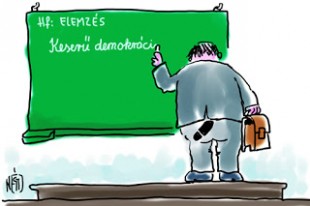 HF: ELEMZÉS
Keserű demokráci